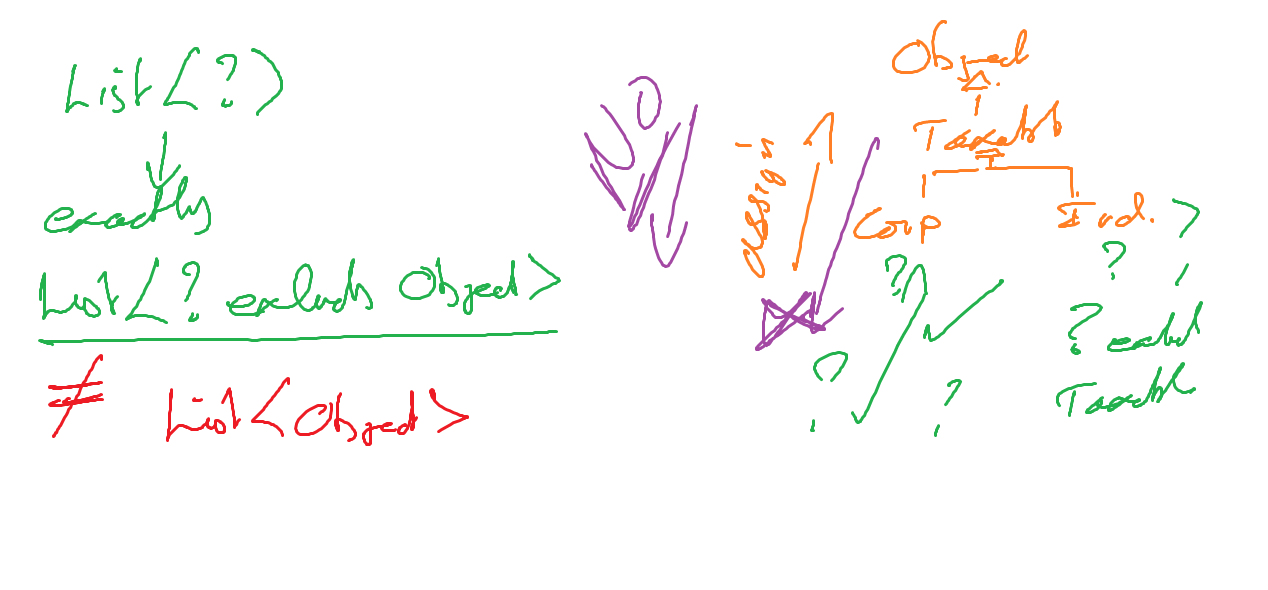 List<?>
exactly
List<? extends Object>
≠ List<Object>
NO
assign
Object
Taxable
Corp
Ind.
?
?
? extends
Taxable
?
?